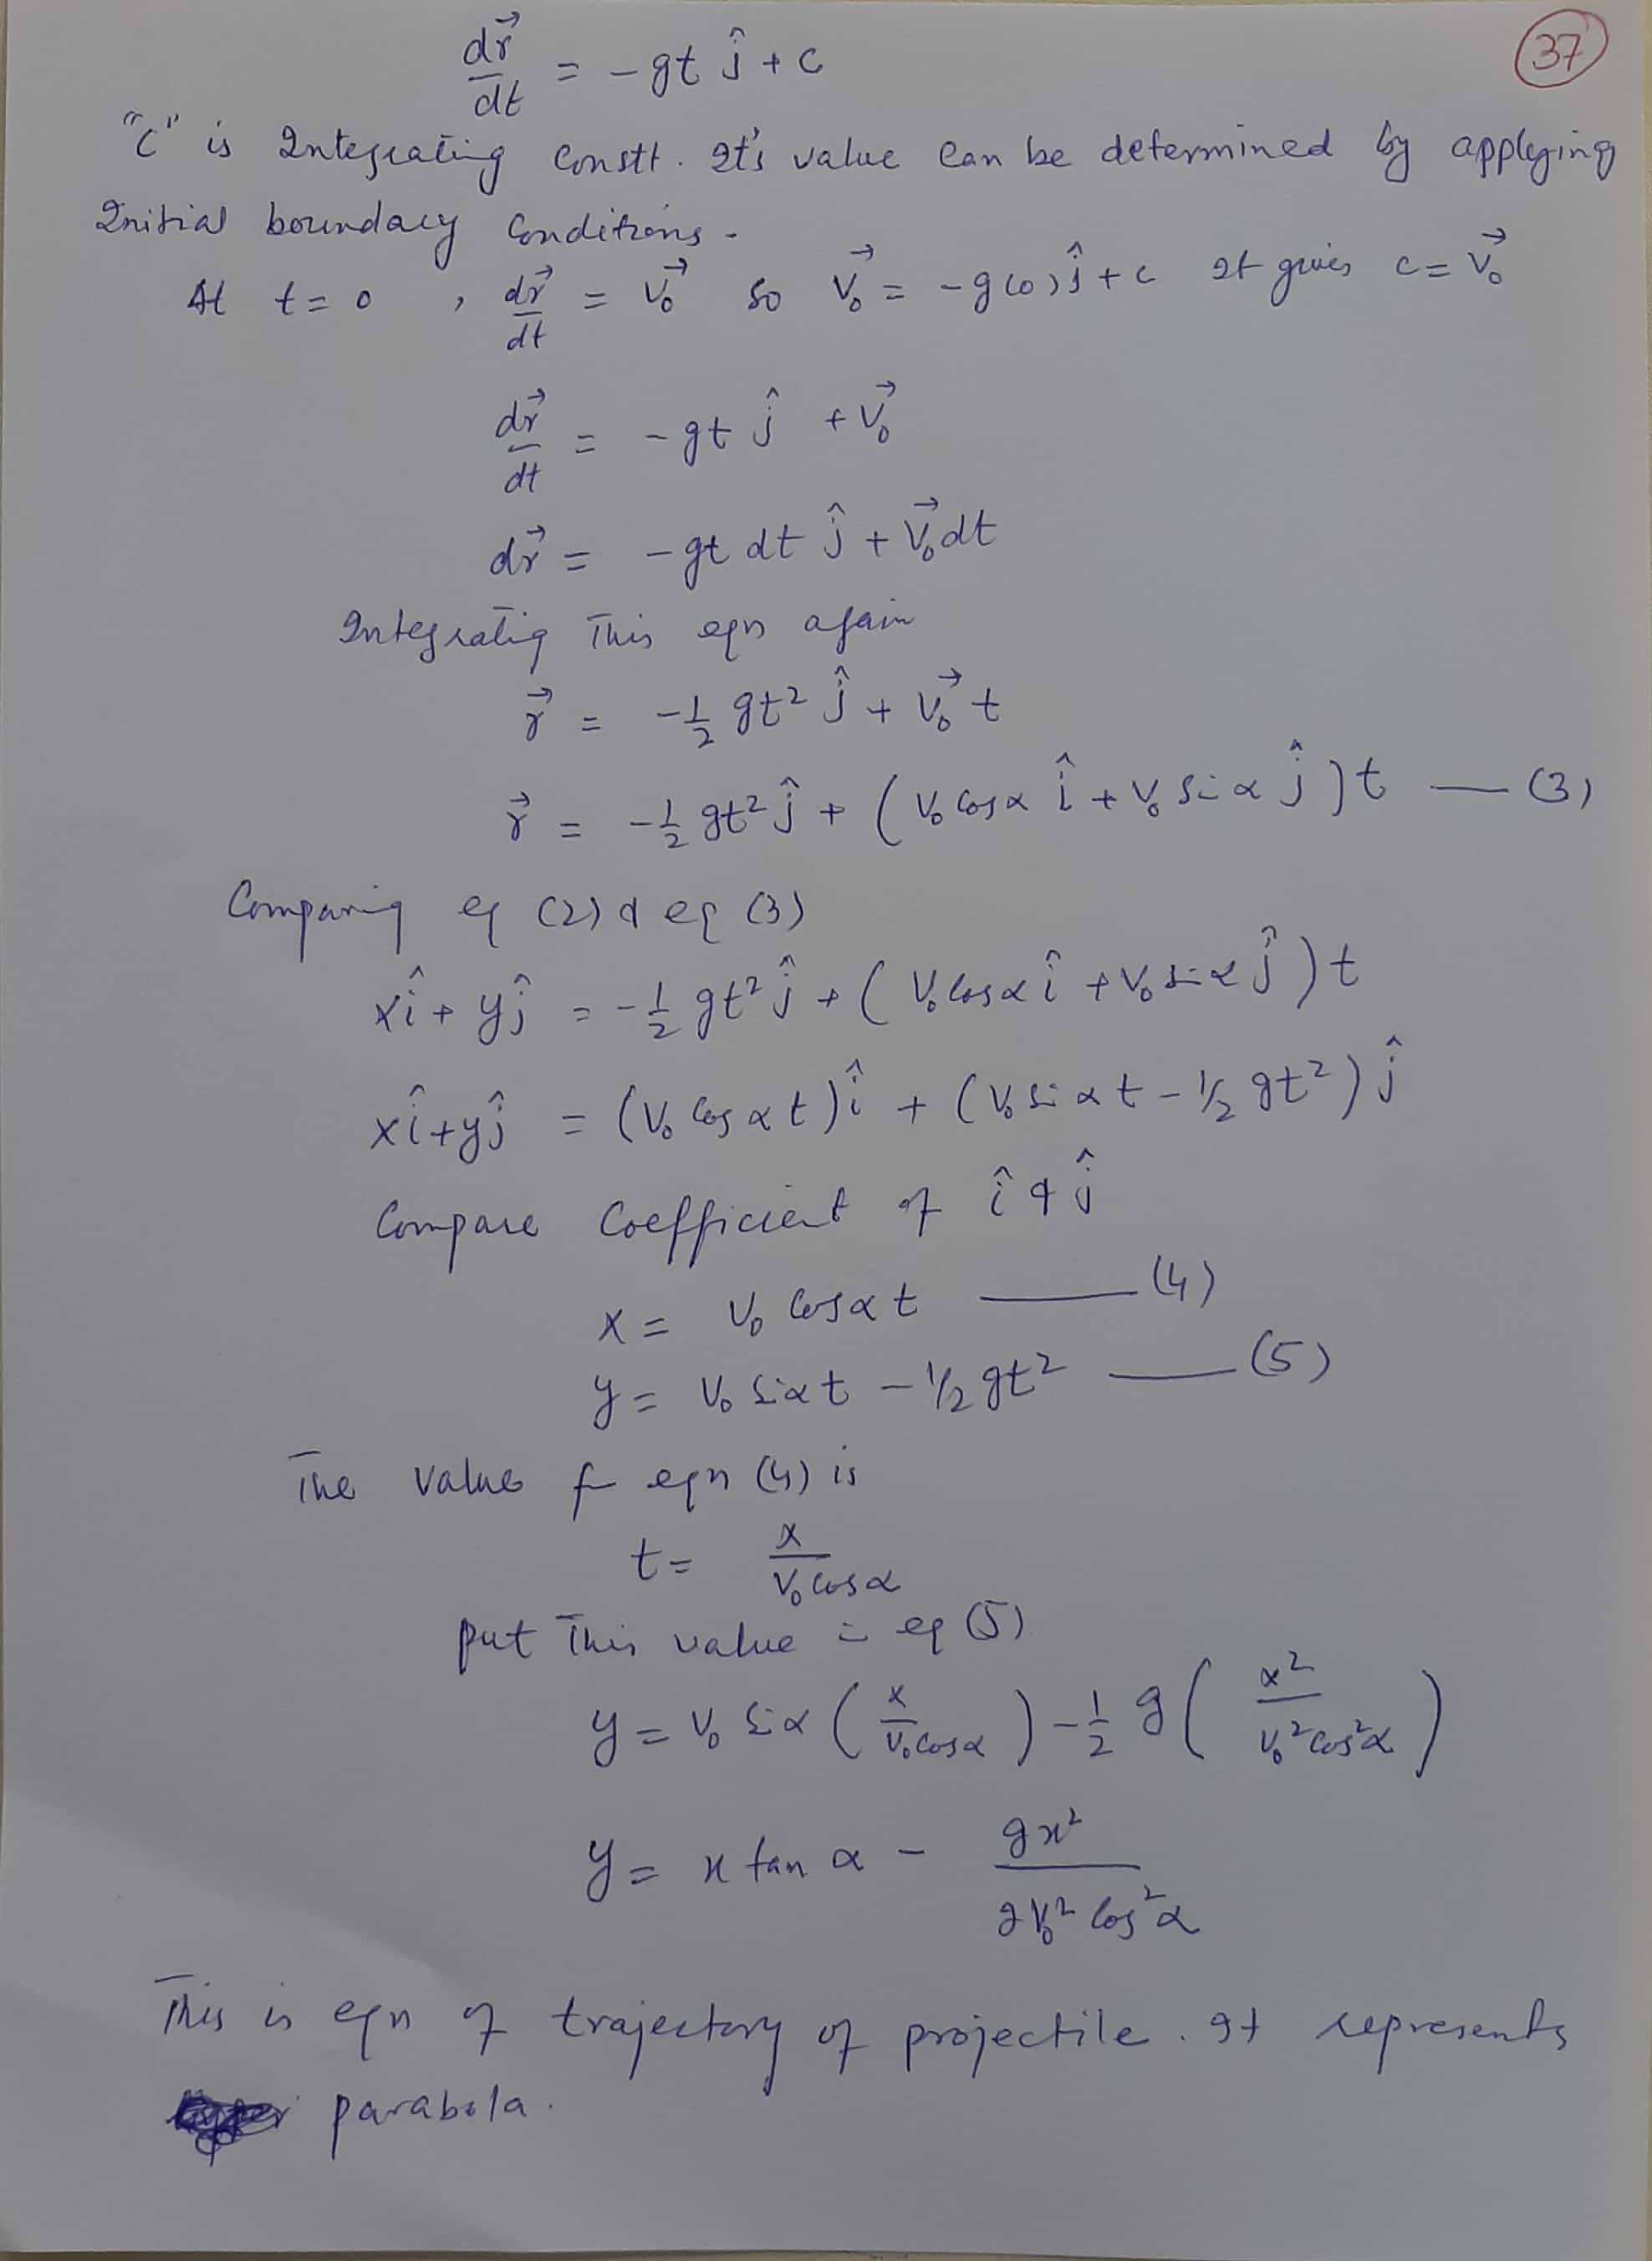 37
dr⃗/dt = -gt ĵ + c
"c" is Integrating Constt. It's value can be determined by applying
Initial boundary Conditions.
At t=0 , dr⃗/dt = V⃗₀ So V⃗₀ = -g(0)ĵ + c It gives c = V⃗₀
dr⃗/dt = -gt ĵ + V⃗₀
dr⃗ = -gt dt ĵ + V⃗₀dt
Integratig This eqn again
r⃗ = -1/2 gt² ĵ + V⃗₀ t
r⃗ = -1/2 gt² ĵ + (V₀ Cosα î + V₀ Sinα ĵ)t — (3)
Comparing eq (2) & eq (3)
xî + yĵ = -1/2 gt² ĵ + (V₀Cosα î + V₀ sinα ĵ)t
xî + yĵ = (V₀ Cosα t)î + (V₀ Sinα t - 1/2 gt²) ĵ
Compare Coefficient of î & ĵ
x = V₀ Cosα t — (4)
y = V₀ Sinα t - 1/2 gt² — (5)
The value f eqn (4) is
t = x/V₀ cosα
put This value in eq (5)
y = V₀ Sinα (x/V₀cosα) - 1/2 g (x²/V₀² cos²α)
y = x tan α - gx²/2V₀² Cos²α
This is eqn of trajectory of projectile. It represents
parabola.